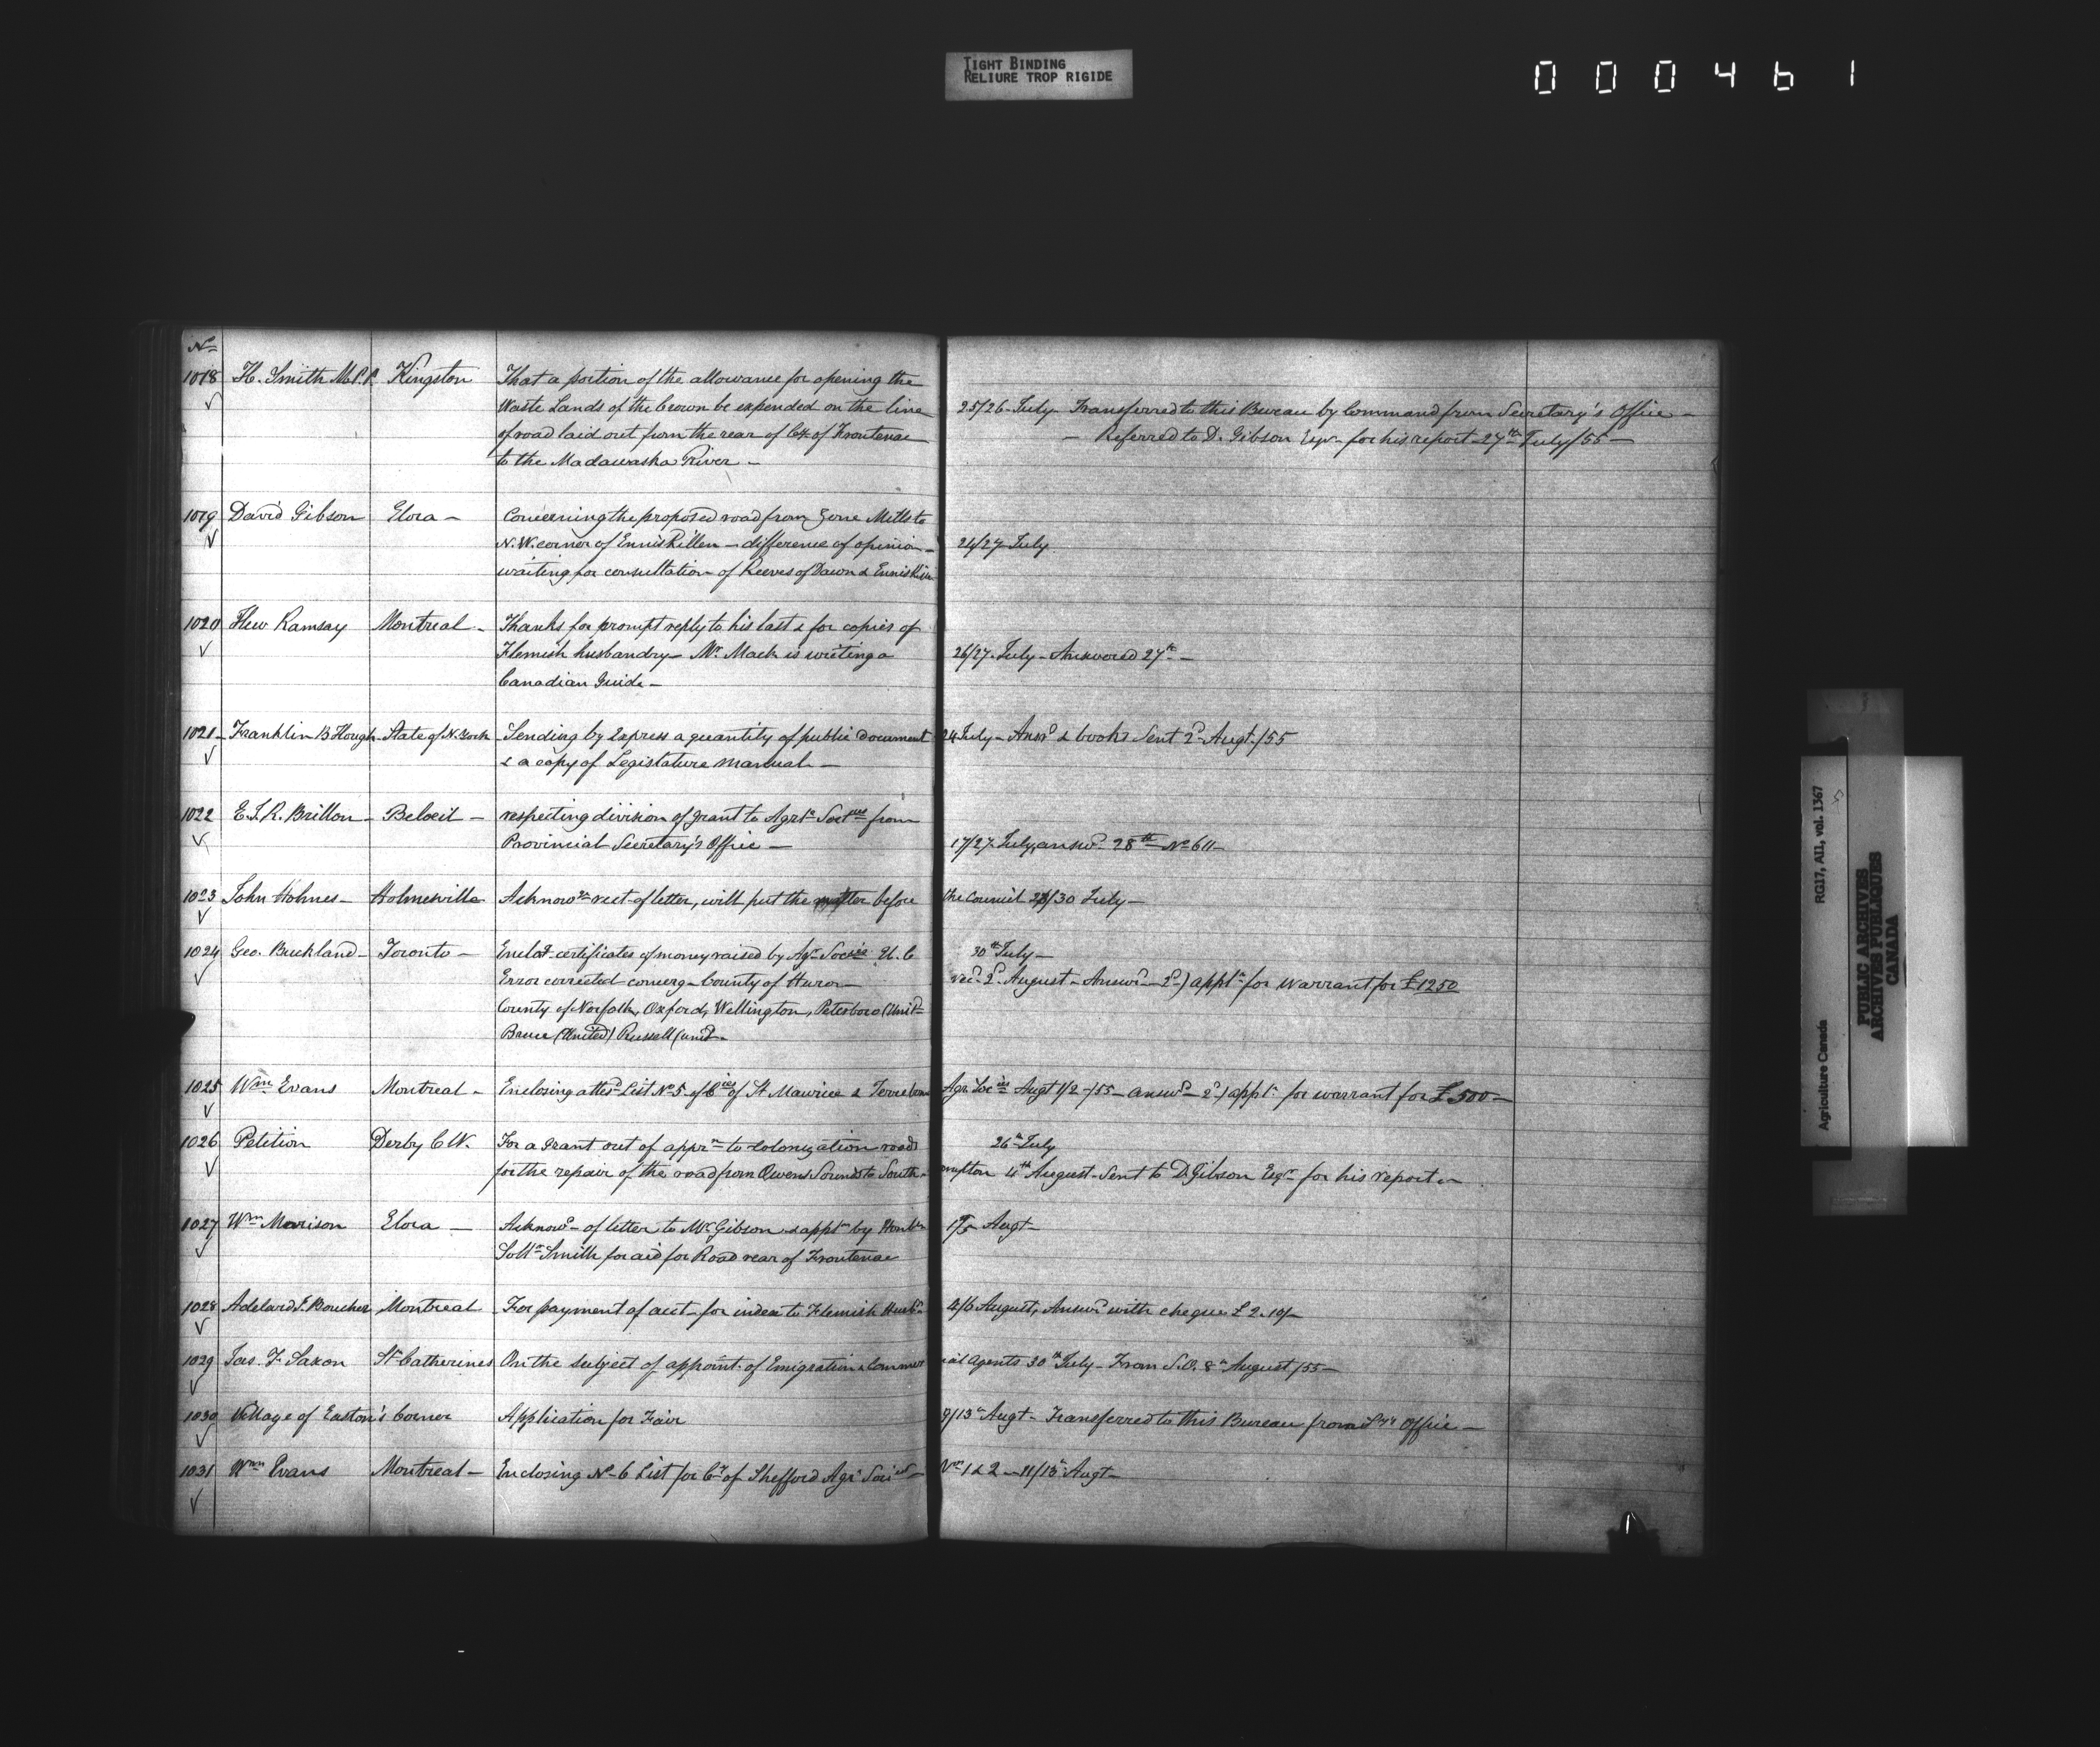 TIGHT BINDING
RELIURE TROP RIGIDE
000461
No
1018 H. Smith M.P.P. Kingston That a portion of the allowance for opening the
Waste Lands of the Crown be expended on the line 25/26 July - Transferred to this Bureau by Command from Secretary's Office -
of road laid out from the rear of Cy. of Frontenac - Referred to D. Gibson Esqr. for his report 27th July/55 -
to the Madawaska River -
1019 David Gibson Elora - Concerning the proposed road from Zone Mills to
N.W. corner of Enniskillen - difference of opinion - 24/27 July
waiting for consultation of Reeves of Dawn & Enniskillen
1020 Hew Ramsay Montreal - Thanks for prompt reply to his last & for copies of
Flemish husbandry - Mr. Mack is writing a 26/27 July - Answered 27th -
Canadian Guide -
1021 - Franklin B Hough - State of N. York Sending by Express a quantity of public Document 24 July - Answd & books Sent 2d Augt./55
& a copy of Legislature Manual -
1022 E.S.R. Brillon - Beloeil - respecting division of grant to Agrl. Socties from
Provincial Secretary's Office - 17/27 July, answd. 28th No 611 -
1023 John Holmes - Holmesville Acknowg rect. of letter, will put the matter before the Council 28/30 July -
1024 Geo. Buckland - Toronto - Enclog certificates of money raised by Agr. Socies U.C 30th July -
Error corrected concerg - County of Huron - recd. 2d. August - Answd - 2d) appln for Warrant for £1250
County of Norfolk, Oxford, Wellington, Peterboro (Unitd
Bruce (United) Russell (unitd -
1025 Wm Evans Montreal - Enclosing attesd List No 5 of Cies of St Maurice & Terrebonne Agr. Socies Augt 1/2 - /55 - answd - 2d) appln for warrant for £500 -
1026 Petition Derby C.W. For a grant out of apprn to colonization roads 26th July
for the repair of the road from Owens Sound to South- ampton 4th August - Sent to D. Gibson Esqr for his report -
1027 Wm Morison Elora - Acknowg - of letter to Mr. Gibson & appln by Honble 1/5 Augt -
Sollr Smith for aid for Road rear of Frontenac
1028 Adelard J. Boucher Montreal For payment of acct - for index to Flemish Husby 4/6 August, Answd with cheque £2.10/-
1029 Jas. F. Saxon St Catherines On the subject of appoint. of Emigration & Commer cial Agents 30th July - From S.O. 8th August /55 -
1030 Village of Easton's Corner Application for Fair 9/13th Augt - Transferred to this Bureau from Office -
1031 Wm Evans Montreal - Enclosing No 6 List for Cy of Shefford Agrl Socies Nos 1 & 2 - 11/13th Augt -
Agriculture Canada RG17, AII, vol. 1367
PUBLIC ARCHIVES
ARCHIVES PUBLIQUES
CANADA